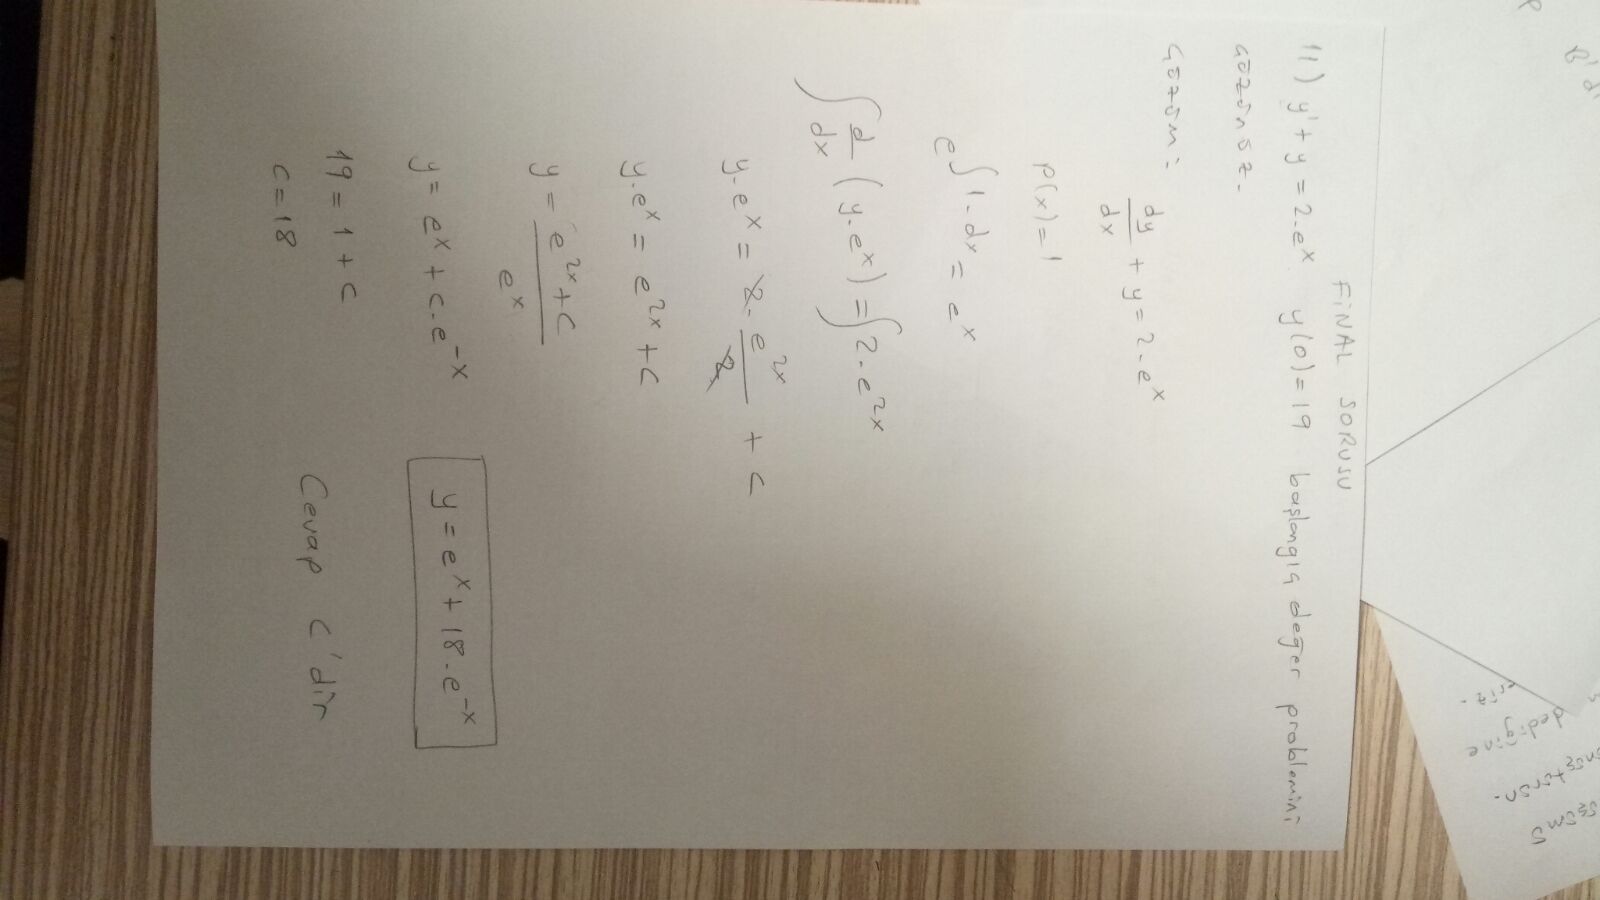 B' d
P
dediğine
eriz.
FİNAL SORUSU
11) y' + y = 2.e^x y(0) = 19 başlangıç değer problemini
çözünüz.
Çözüm:
dy/dx + y = 2.e^x
P(x) = 1
e^∫1.dx = e^x
∫ d/dx (y.e^x) = ∫ 2.e^2x
y.e^x = 2. e^2x/2 + c
y.e^x = e^2x + c
y = e^2x + c / e^x
y = e^x + c.e^-x
y = e^x + 18.e^-x
19 = 1 + c
c = 18
Cevap C'dir